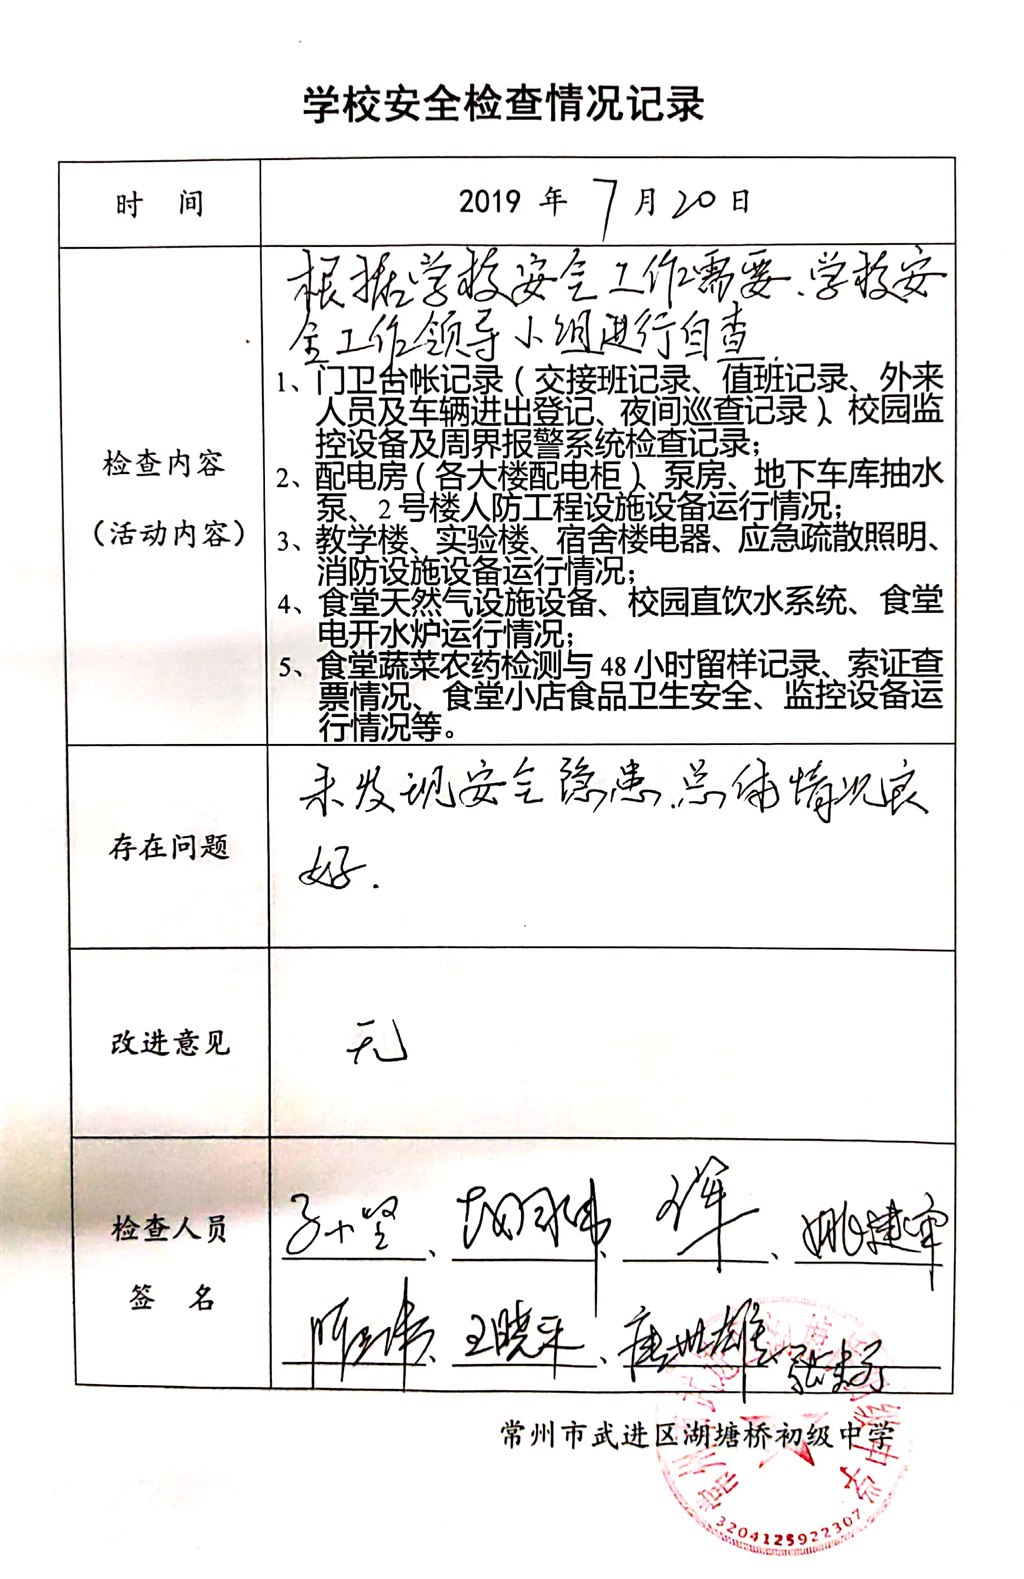 学校安全检查情况记录
时 间
2019 年 7 月 20 日
检查内容
（活动内容）
根据学校安全工作需要、学校安
全工作领导小组进行自查.
1、门卫台帐记录（交接班记录、值班记录、外来
人员及车辆进出登记、夜间巡查记录）、校园监
控设备及周界报警系统检查记录；
2、配电房（各大楼配电柜）、泵房、地下车库抽水
泵、2 号楼人防工程设施设备运行情况；
3、教学楼、实验楼、宿舍楼电器、应急疏散照明、
消防设施设备运行情况；
4、食堂天然气设施设备、校园直饮水系统、食堂
电开水炉运行情况；
5、食堂蔬菜农药检测与 48 小时留样记录、索证查
票情况、食堂小店食品卫生安全、监控设备运
行情况等。
存在问题
未发现安全隐患.总体情况良
好.
改进意见
无
检查人员
签 名
姚建军
王晓平、唐世雄
常州市武进区湖塘桥初级中学
3204125922307